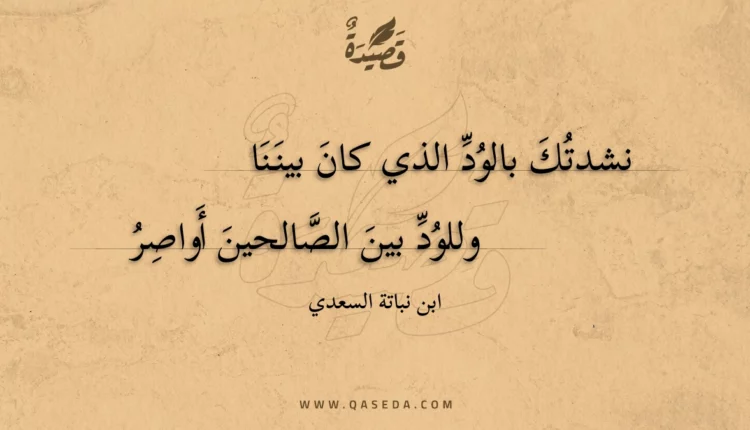 قَصِيْدَةٌ
نشدتُكَ بالوُدِّ الذي كانَ بينَنَا
وللوُدِّ بينَ الصَّالحينَ أَواصِرُ
ابن نباتة السعدي
WWW.QASEDA.COM